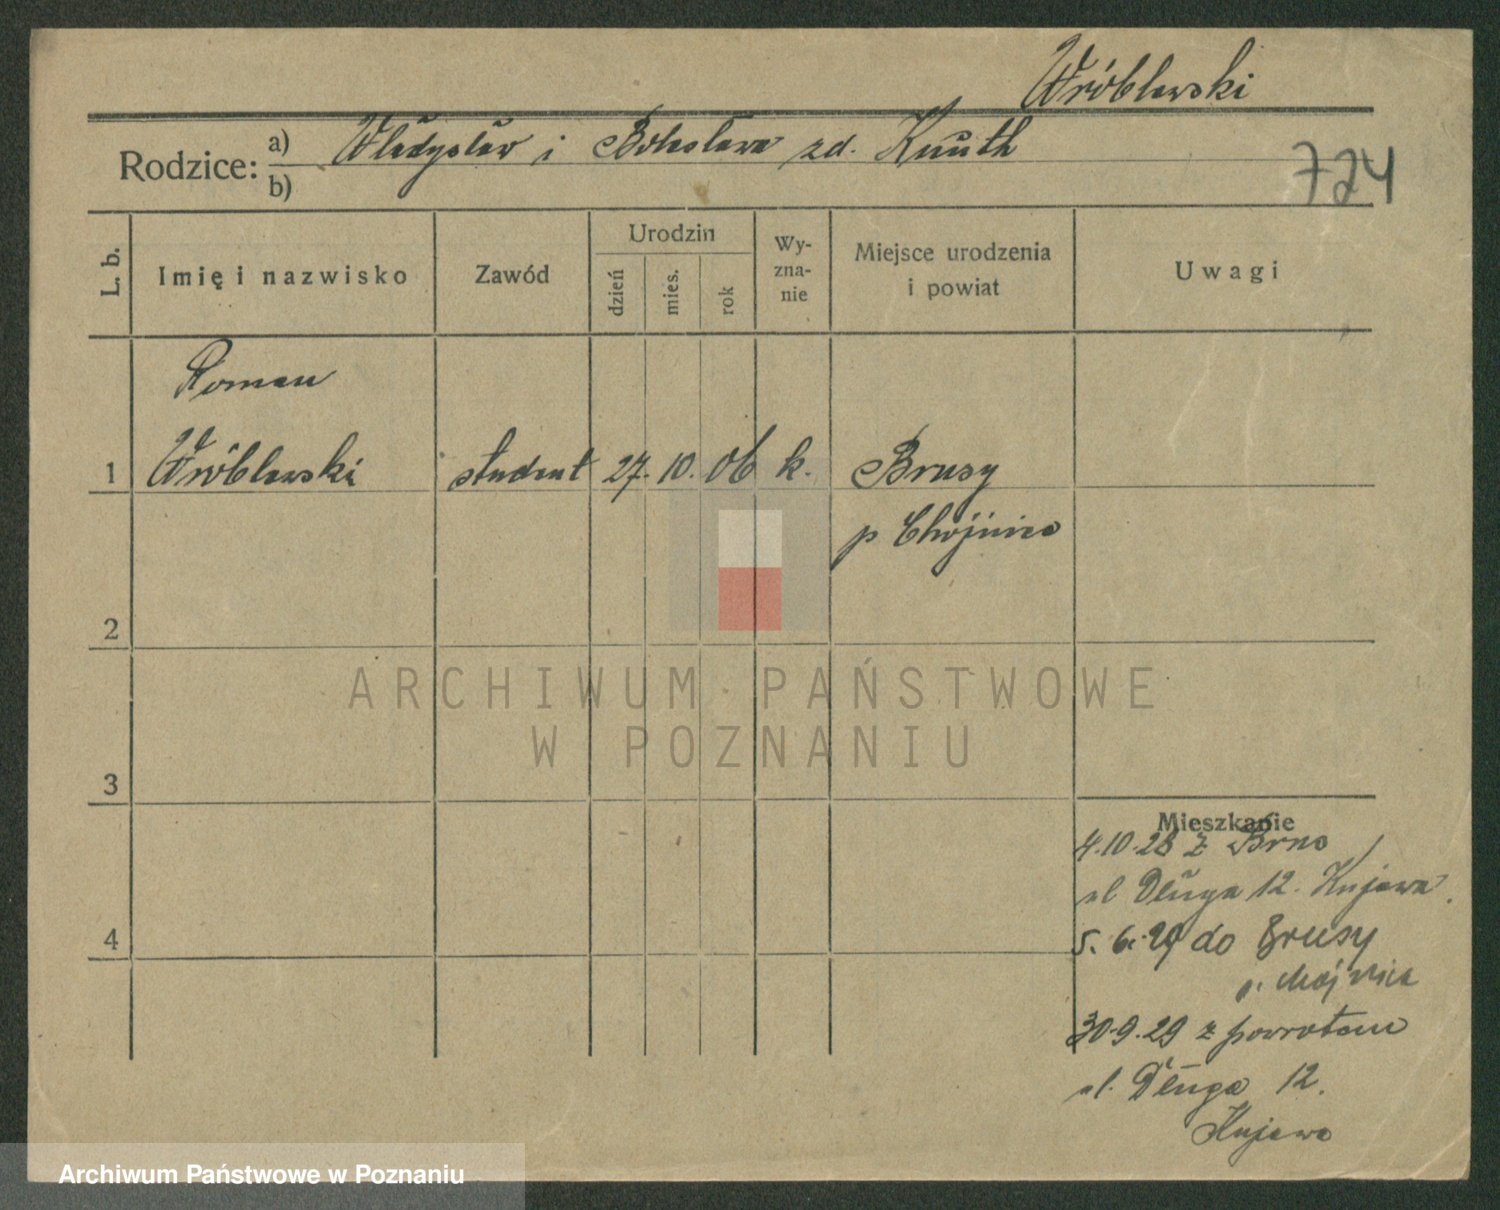 Wróblewski
Rodzice: a) Władysław i Bolesława zd. Knuth
b)
724
L. b.
Imię i nazwisko
Zawód
Urodzin
dzień
mies.
rok
Wy-
zna-
nie
Miejsce urodzenia
i powiat
Uwagi
Roman
1 Wróblewski student 27. 10. 06 k. Brusy
p Chojnice
2
3
4
Mieszkanie
4.10.28 z
ul Długa 12. Kujawa
5. 6. 29 do Brusy
p. Chojnice
30.9.29 z powrotem
ul. Długa 12.
Kujawa
ARCHIWUM PAŃSTWOWE
W POZNANIU
Archiwum Państwowe w Poznaniu